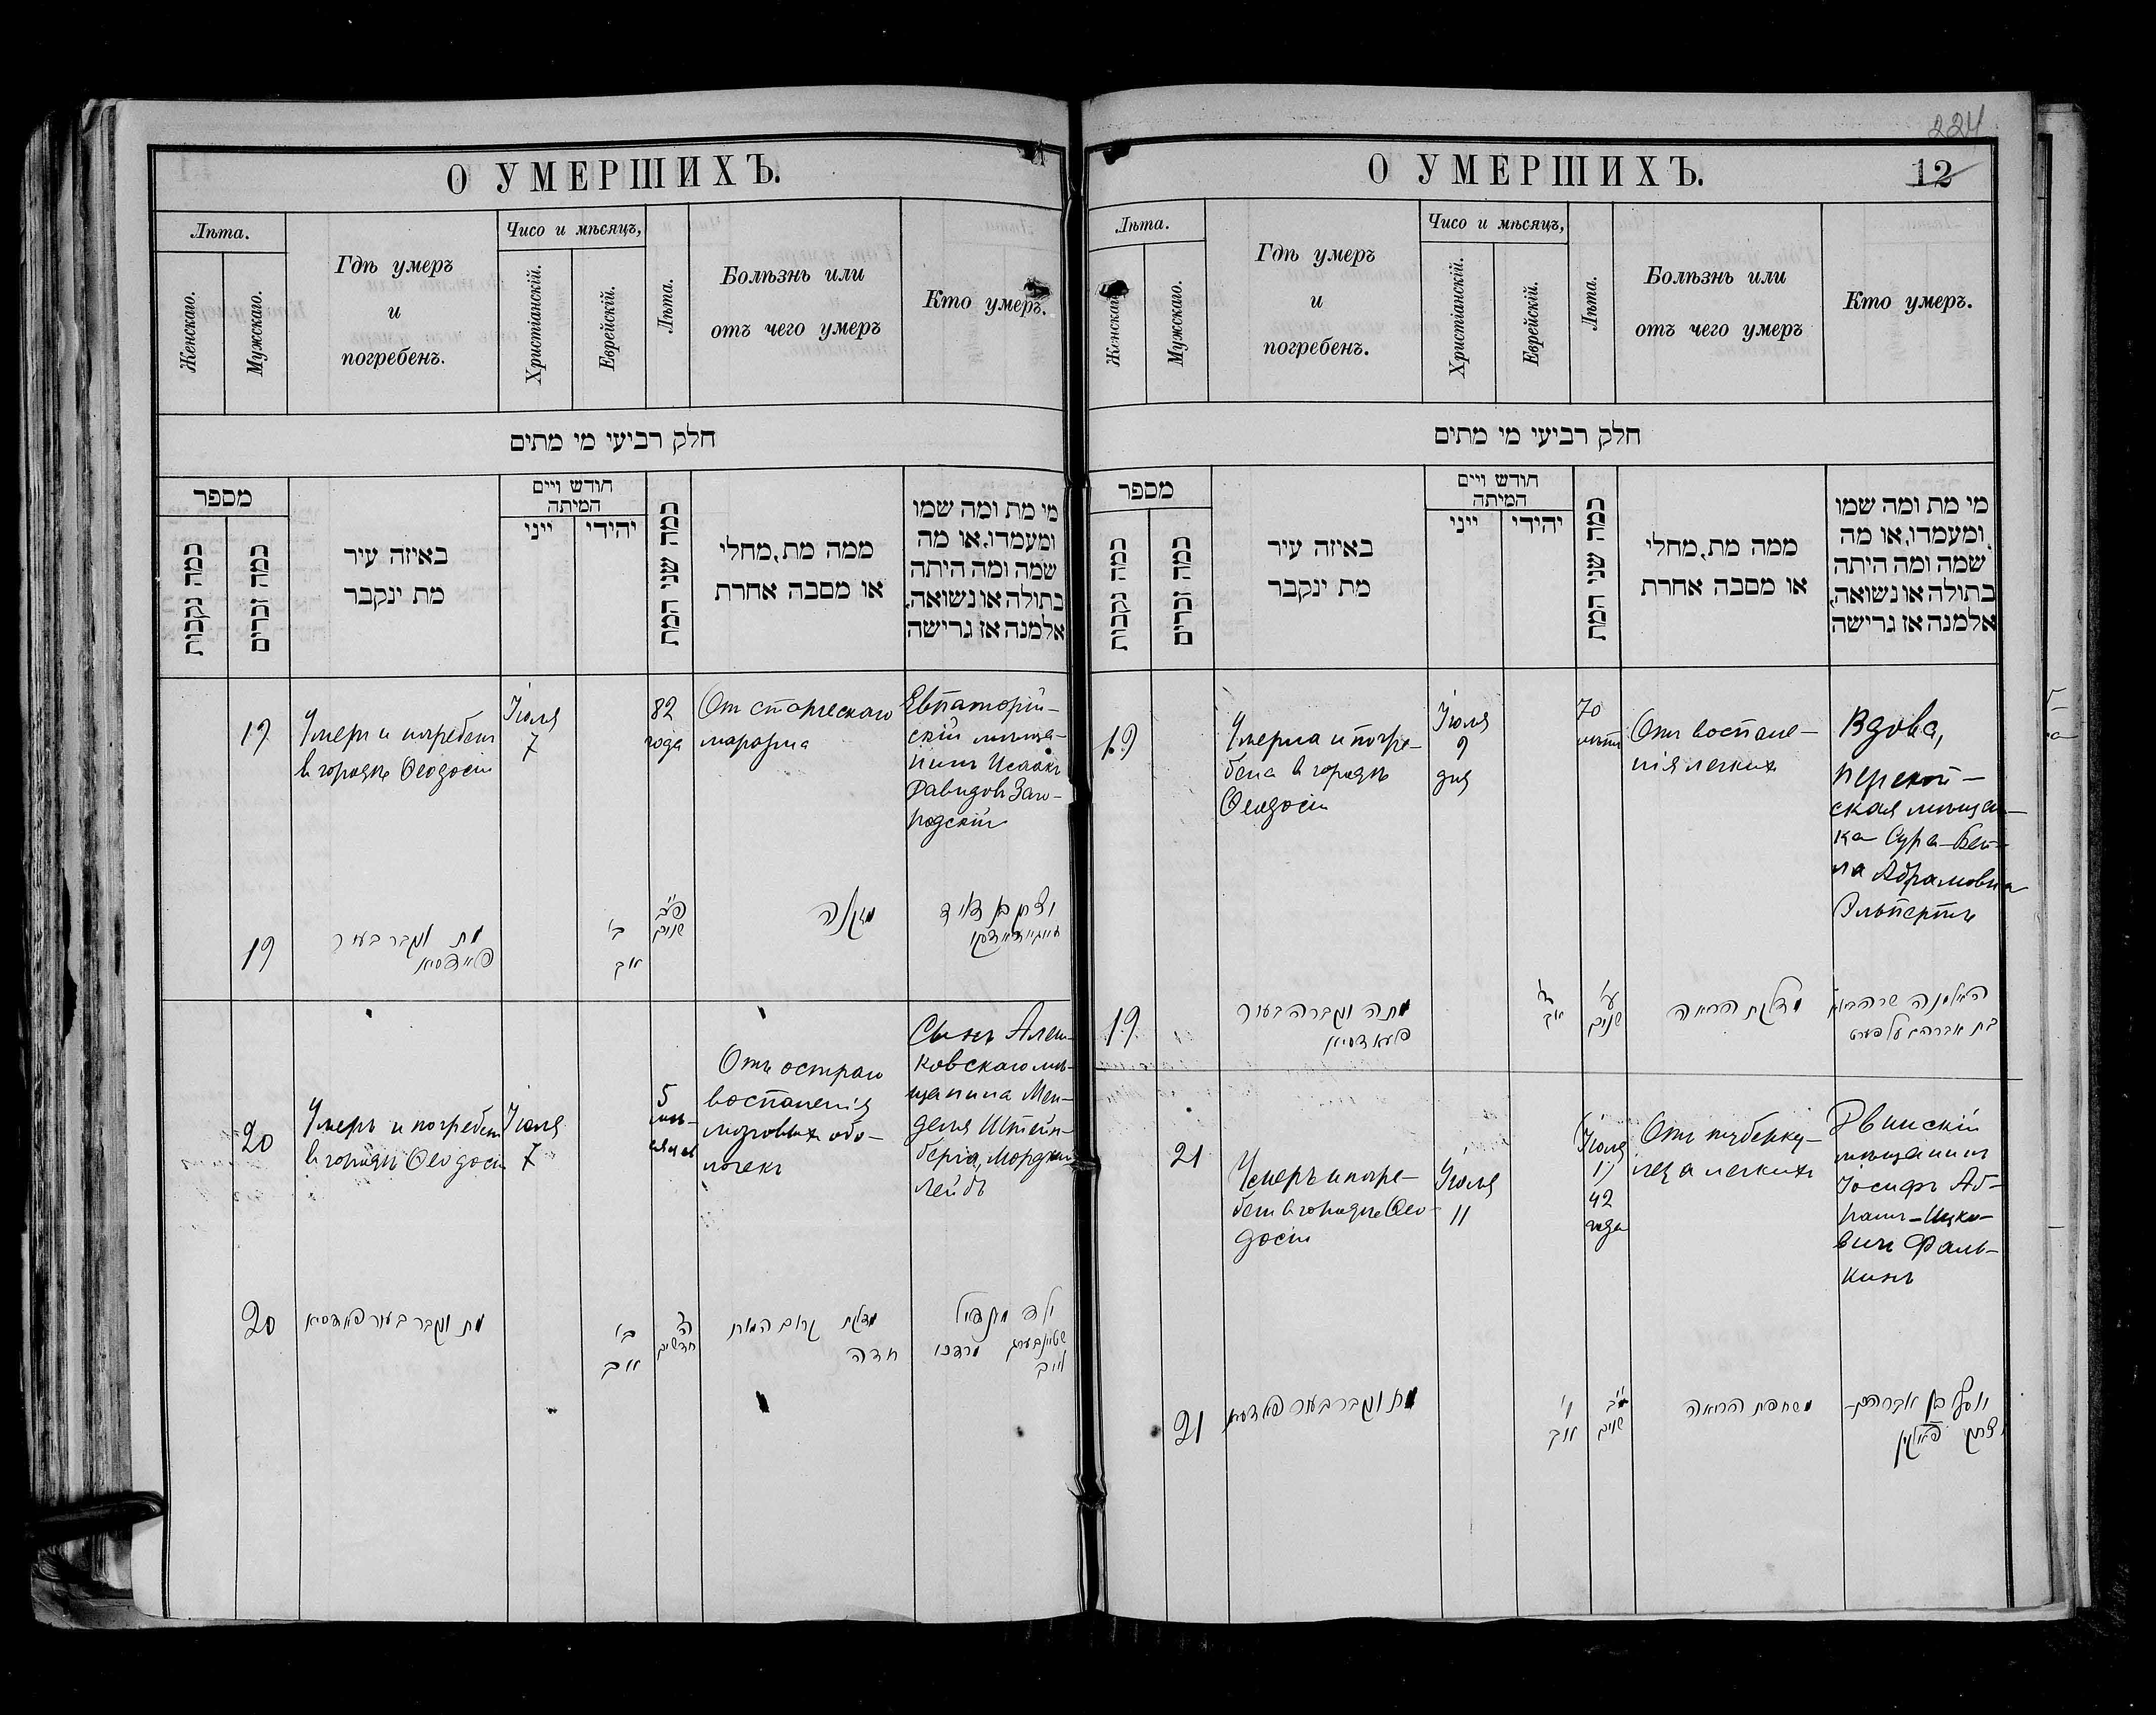 О УМЕРШИХЪ.
Лѣта.
Женскаго.
Мужскаго.
Гдѣ умеръ
и
погребенъ.
Чисо и мѣсяцъ,
Христіанскій.
Еврейскій.
Лѣта.
Болѣзнь или
отъ чего умеръ
Кто умеръ.
חלק רביעי מי מתים
מספר
כמה נקבות
כמה זכרים
באיזה עיר
מת ינקבר
חודש ויים
המיתה
ייני
יהודי
כמה שני המת
ממה מת, מחלי
או מסבה אחרת
מי מת ומה שמו
ומעמדו, או מה
שמה ומה היתה
בתולה או נשואה,
אלמנה אז גרישה
19
Умеръ и погребенъ
въ городѣ Ѳеодосіи
Іюля
7
82
года
От старческаго
маразма
Евпаторій-
скій мѣща-
нинъ Исаакъ
Давидовъ Заго-
родскій
19
מת ונקבר בעיר
ב׳
אב
פ״ב
שנים
מזקנה
יצחק בן דוד
20
Умеръ и погребенъ
въ городѣ Ѳеодосіи
Іюля
7
5
мѣ-
сяцев
Отъ остраго
воспаленія
мозговыхъ обо-
лочекъ
Сынъ Алеш-
ковскаго мѣ-
щанина Мен-
деля Штейн-
берга, Мордко
Лейбъ
20
מת ונקבר בעיר
ב׳
אב
ה׳
חדשים
מדלקת קרום המוח
חדה
ילד
שטיינבערג מרדכי
לייב
224
О УМЕРШИХЪ.
12
Лѣта.
Женскаго
Мужскаго.
Гдѣ умеръ
и
погребенъ.
Чисо и мѣсяцъ,
Христіанскій.
Еврейскій.
Лѣта.
Болѣзнь или
отъ чего умеръ
Кто умеръ.
חלק רביעי מי מתים
מספר
כמה נקבות
כמה זכרים
באיזה עיר
מת ינקבר
חודש ויים
המיתה
ייני
יהודי
כמה שני המת
ממה מת, מחלי
או מסבה אחרת
מי מת ומה שמו
ומעמדו, או מה
שמה ומה היתה
בתולה או נשואה,
אלמנה אז גרישה
19
Умерла и погре-
бена въ городѣ
Ѳеодосіи
Іюля
9
дня
70
лѣтъ
Отъ воспале-
нія легкихъ
Вдова,
перекоп-
ская мѣщан-
ка Сура-Бей-
ла Абрамовна
Альпертъ
19
מתה ונקברה בעיר
ד׳
אב
ע׳
שנים
מדלקת הריאה
האלמנה שרה ביילא
בת אברהם אלפערט
21
Умеръ и погре-
бенъ въ городѣ Ѳео-
досіи
Іюля
11
Іюля
11
42
года
Отъ туберку-
леза легкихъ
Двинскій
мѣщанинъ
Іосифъ Аб-
рамъ-Ицко-
вичъ Фаль-
кинъ
21
מת ונקבר בעיר
ו׳
אב
שנים
משחפת הריאה
יוסף בן אברהם-
יצחק פאלקין